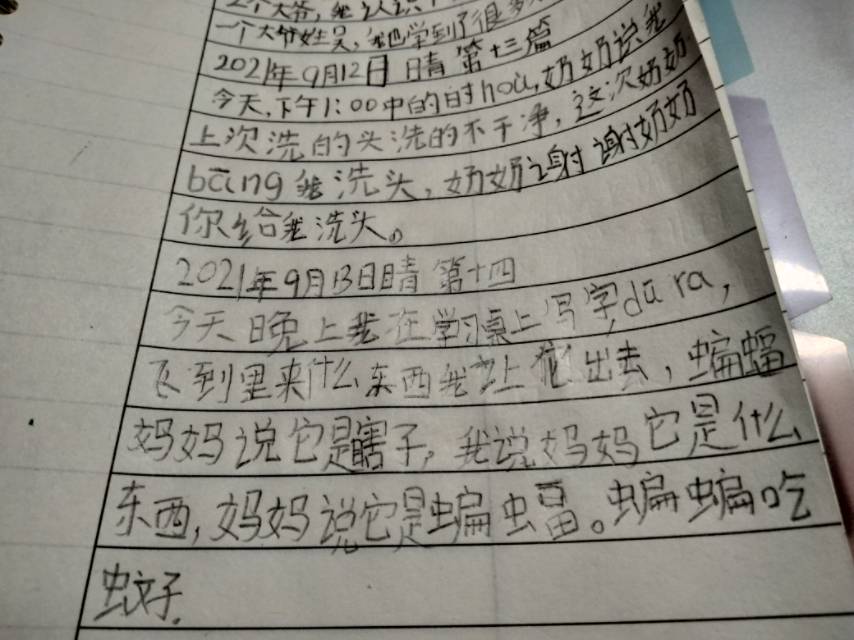 2个大爷，我认识
一个大爷姓吴，我也学到了很多
2021年9月12日 晴 第十三篇
今天，下午1:00中的时hou，奶奶说我
上次洗的头洗的不干净，这次奶奶
bāng我洗头，奶奶谢谢奶奶
你给我洗头。
2021年9月13日晴 第十四
今天晚上我在学习桌上写字，dū ra，
飞到里来什么东西我上把出去，蝙蝠
妈妈说它是瞎子，我说妈妈它是什么
东西，妈妈说它是蝙蝠。蝙蝙吃
蚊子.